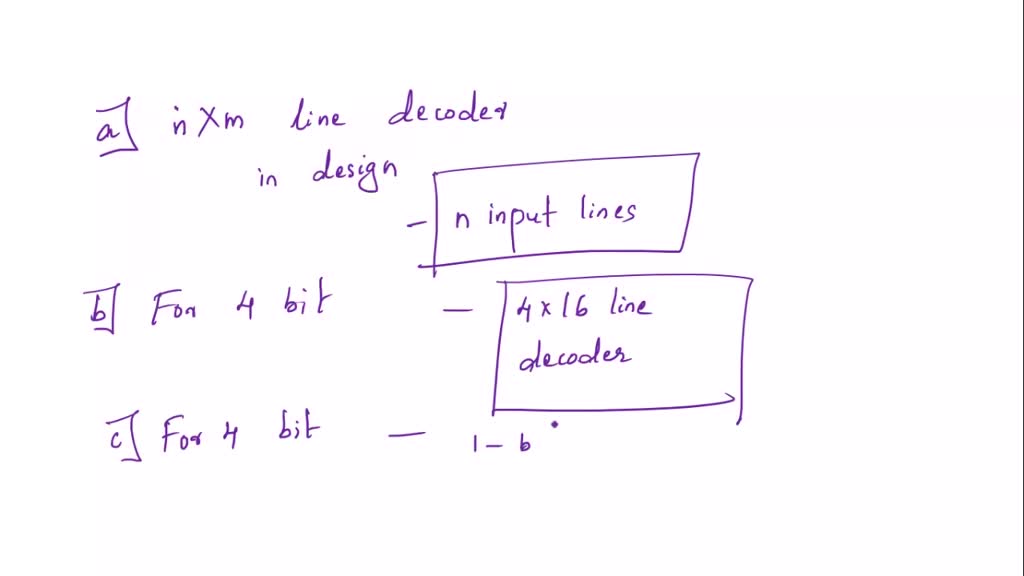 a] n X m line decoder
in design
- n input lines
b] For 4 bit - 4 x 16 line
decoder
c] For 4 bit - 1 - b